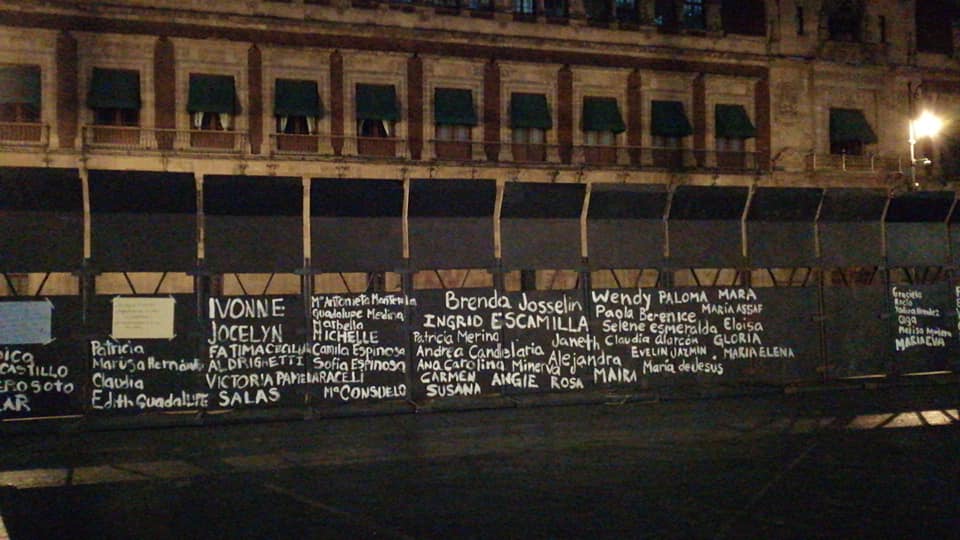 CASTILLO
SOTO
Patricia
Maruja Hernández
Claudia
Edith Guadalupe
IVONNE
JOCELYN
FATIMA CECILIA
ALDRIGHETTI
VICTORIA PAMELA
SALAS
Mª Antonieta
Guadalupe Medina
Norbella
MICHELLE
Camila Espinosa
Sofia Espinosa
ARACELI
Mª CONSUELO
Brenda Josselin
INGRID ESCAMILLA
Patricia Merino
Janeth
Andrea Candislaria
Alejandra
Ana Carolina Minerva
CARMEN ANGIE ROSA
MAIRA
SUSANA
Wendy PALOMA MARA
Paola Berenice MARIA ASSAF
Selene esmeralda Eloisa
Claudia alarcón GLORIA
EVELIN JAZMIN MARIA ELENA
María de Jesus
Graciela
Rocio
Olga
Melisa
MARIA EVA